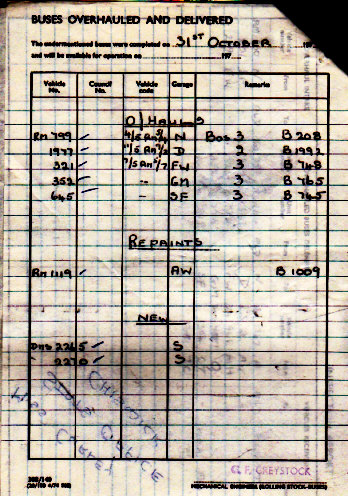 BUSES OVERHAULED AND DELIVERED
The undermentioned buses were completed on 31ST OCTOBER 197
and will be available for operation on 197
Vehicle No. Council No. Vehicle code Garage Remarks
O/HAULS
RM 799 N Bos 3 B 208
1977 D 2 B 1992
321 FW 3 B 748
352 GM 3 B 765
645 SF 3 B 745
REPAINTS
RM 1119 AW B 1009
NEW
DMS 2265 S
2270 S
CHISWICK
OFFICE
G. F. GREYSTOCK
MECHANICAL ENGINEER (ROLLING STOCK-BUSES)